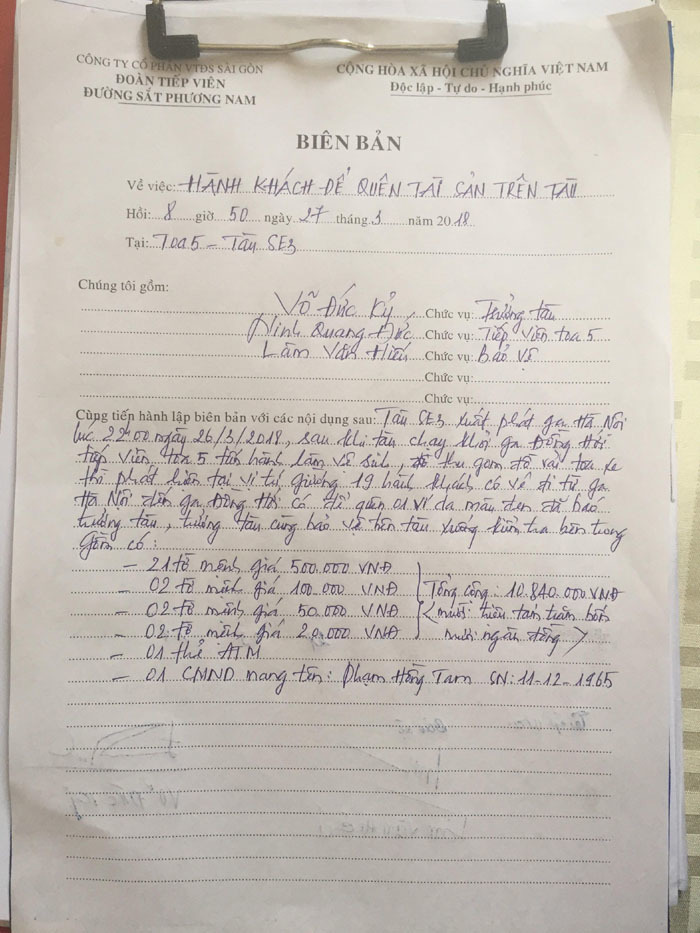 CÔNG TY CỔ PHẦN VTĐS SÀI GÒN
ĐOÀN TIẾP VIÊN
ĐƯỜNG SẮT PHƯƠNG NAM
CỘNG HÒA XÃ HỘI CHỦ NGHĨA VIỆT NAM
Độc lập - Tự do - Hạnh phúc
BIÊN BẢN
Về việc: HÀNH KHÁCH ĐỂ QUÊN TÀI SẢN TRÊN TÀU
Hồi: 8 giờ 50 ngày 27 tháng 3 năm 2018
Tại: Toa 5 - Tàu SE3
Chúng tôi gồm:
Võ Đức Kỷ Chức vụ: Trưởng tàu
Ninh Quang Đức Chức vụ: Tiếp viên toa 5
Lâm Văn Hiếu Chức vụ: Bảo vệ
Chức vụ:
Chức vụ:
Cùng tiến hành lập biên bản với các nội dung sau: Tàu SE3 xuất phát ga Hà Nội
lúc 22:00 ngày 26/3/2018, sau khi tàu chạy khỏi ga Đồng Hới
tiếp viên toa 5 tiến hành làm vệ sinh, thu gom đồ vải toa xe
thì phát hiện tại vị trí giường 19 hành khách có vé đi từ ga
Hà Nội đến ga Đồng Hới có để quên 01 ví da màu đen đã báo
trưởng tàu, trưởng tàu cùng bảo vệ trên tàu xuống kiểm tra bên trong
gồm có:
- 21 tờ mệnh giá 500.000 VNĐ
- 02 tờ mệnh giá 100.000 VNĐ Tổng cộng: 10.840.000 VNĐ
- 02 tờ mệnh giá 50.000 VNĐ <mười triệu tám trăm bốn
- 02 tờ mệnh giá 20.000 VNĐ mươi ngàn đồng>
- 01 thẻ ATM
- 01 CMND mang tên: Phạm Hồng Tam SN: 11-12-1965